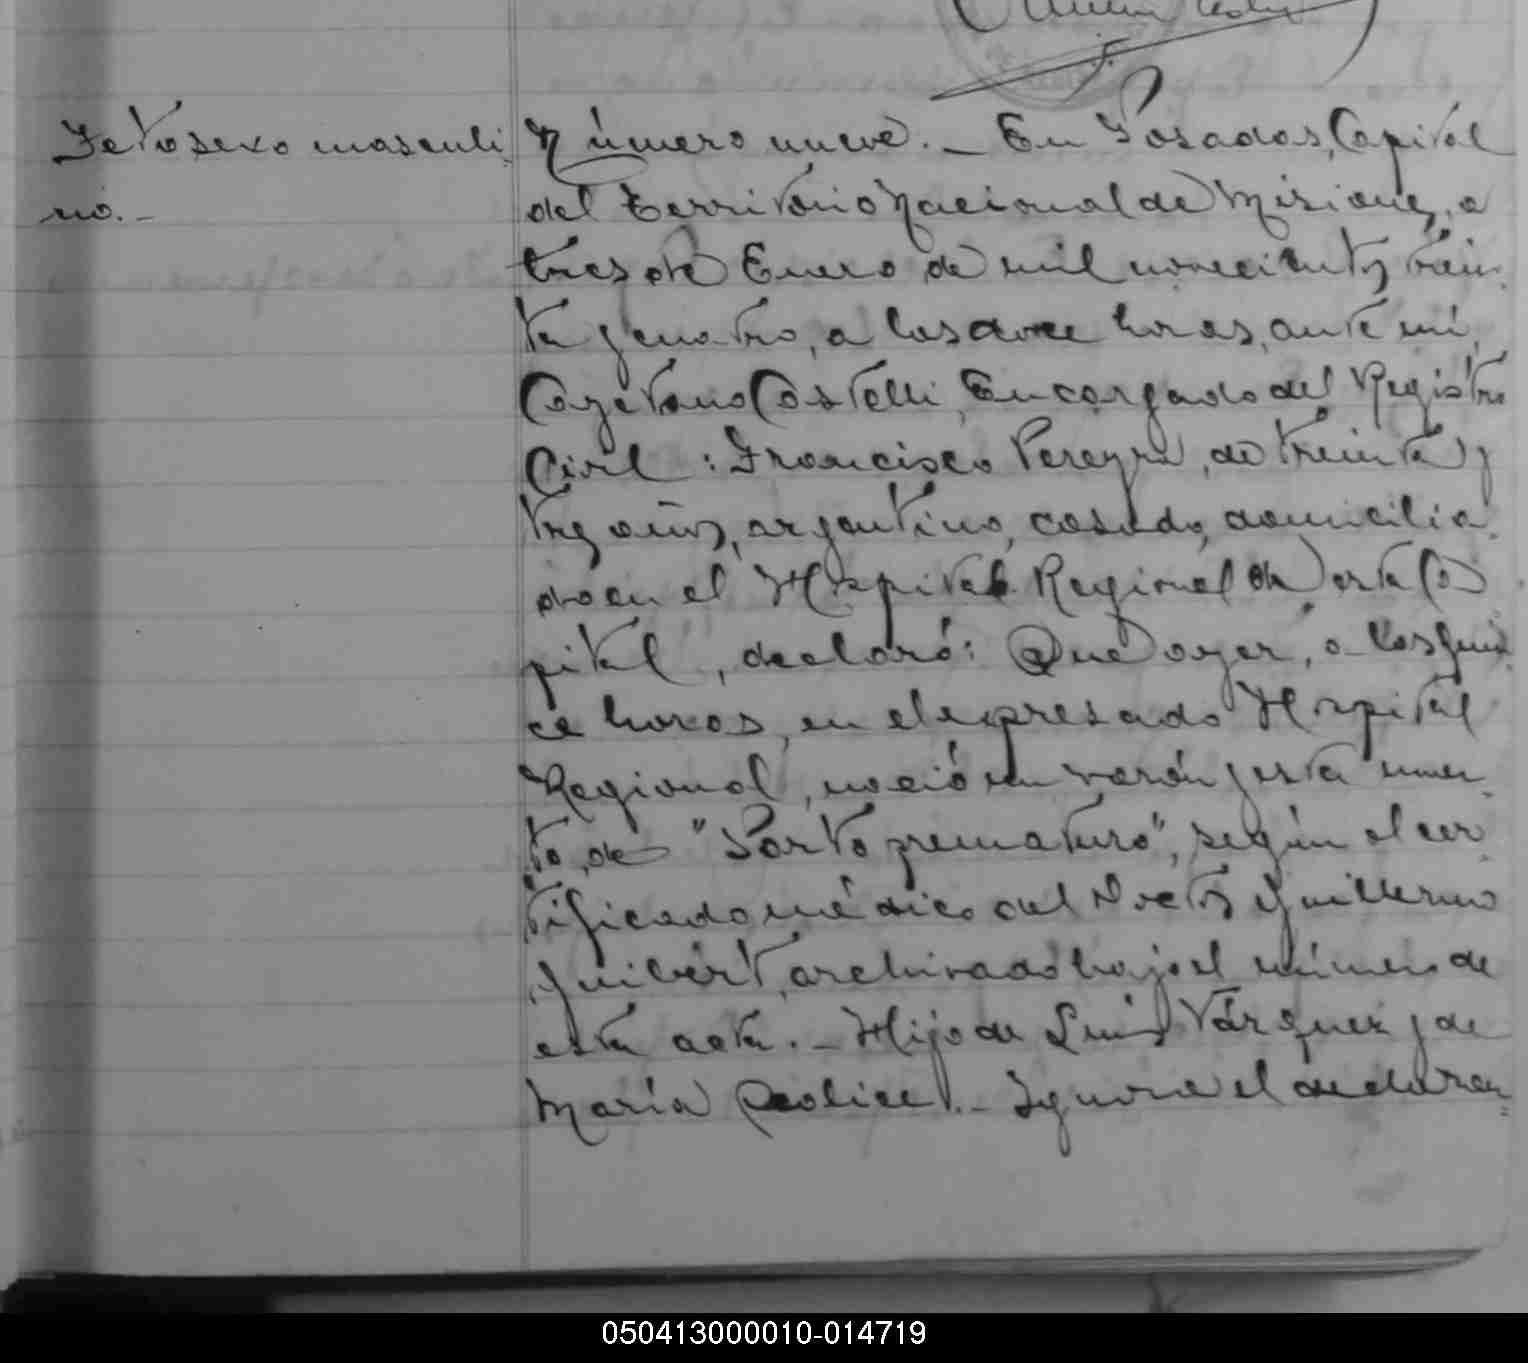 Feto sexo masculi
no.-
Número nueve. - En Posadas, Capital
del Territorio Nacional de Misiones, a
tres de Enero de mil novecientos trein-
ta y cuatro, a las doce horas, ante mí,
Cayetano Castelli, Encargado del Registro
Civil: Francisco Pereyra, de treinta y
tres años, argentino, casado, domicilia-
do en el Hospital Regional de esta Ca
pital, declaró: Que ayer, a las quin
ce horas, en el expresado Hospital
Regional, nació un varón y esta muer-
to, de "Parto prematuro", según el cer
tificado médico del Doctor Guillermo
archivado bajo el número de
esta acta. - Hijo de Luis Vázquez y de
María - Ignora el declaran-
050413000010-014719